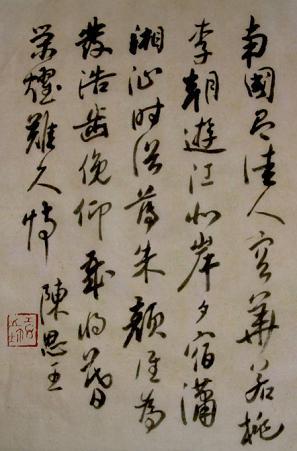 南國有佳人容華若桃
李朝遊江北岸夕宿瀟
湘沚时俗薄朱顏誰為
發浩齒俛仰歲将暮
榮燿難久恃
陳思王